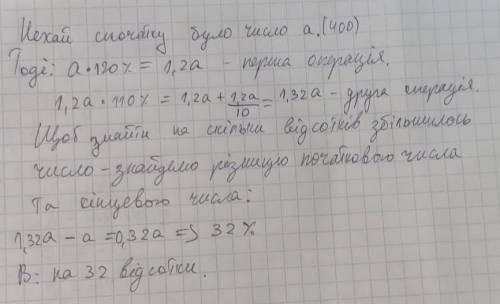 Нехай спочатку було число a.(400)
Тоді: a·120% = 1,2a - перша операція.
1,2a·110% = 1,2a + 1,2a/10 = 1,32a - друга операція.
Щоб знайти на скільки відсотків збільшилось
число - знайдемо різницю початкового числа
та кінцевого числа:
1,32a - a = 0,32a => 32%
В: на 32 відсотки.